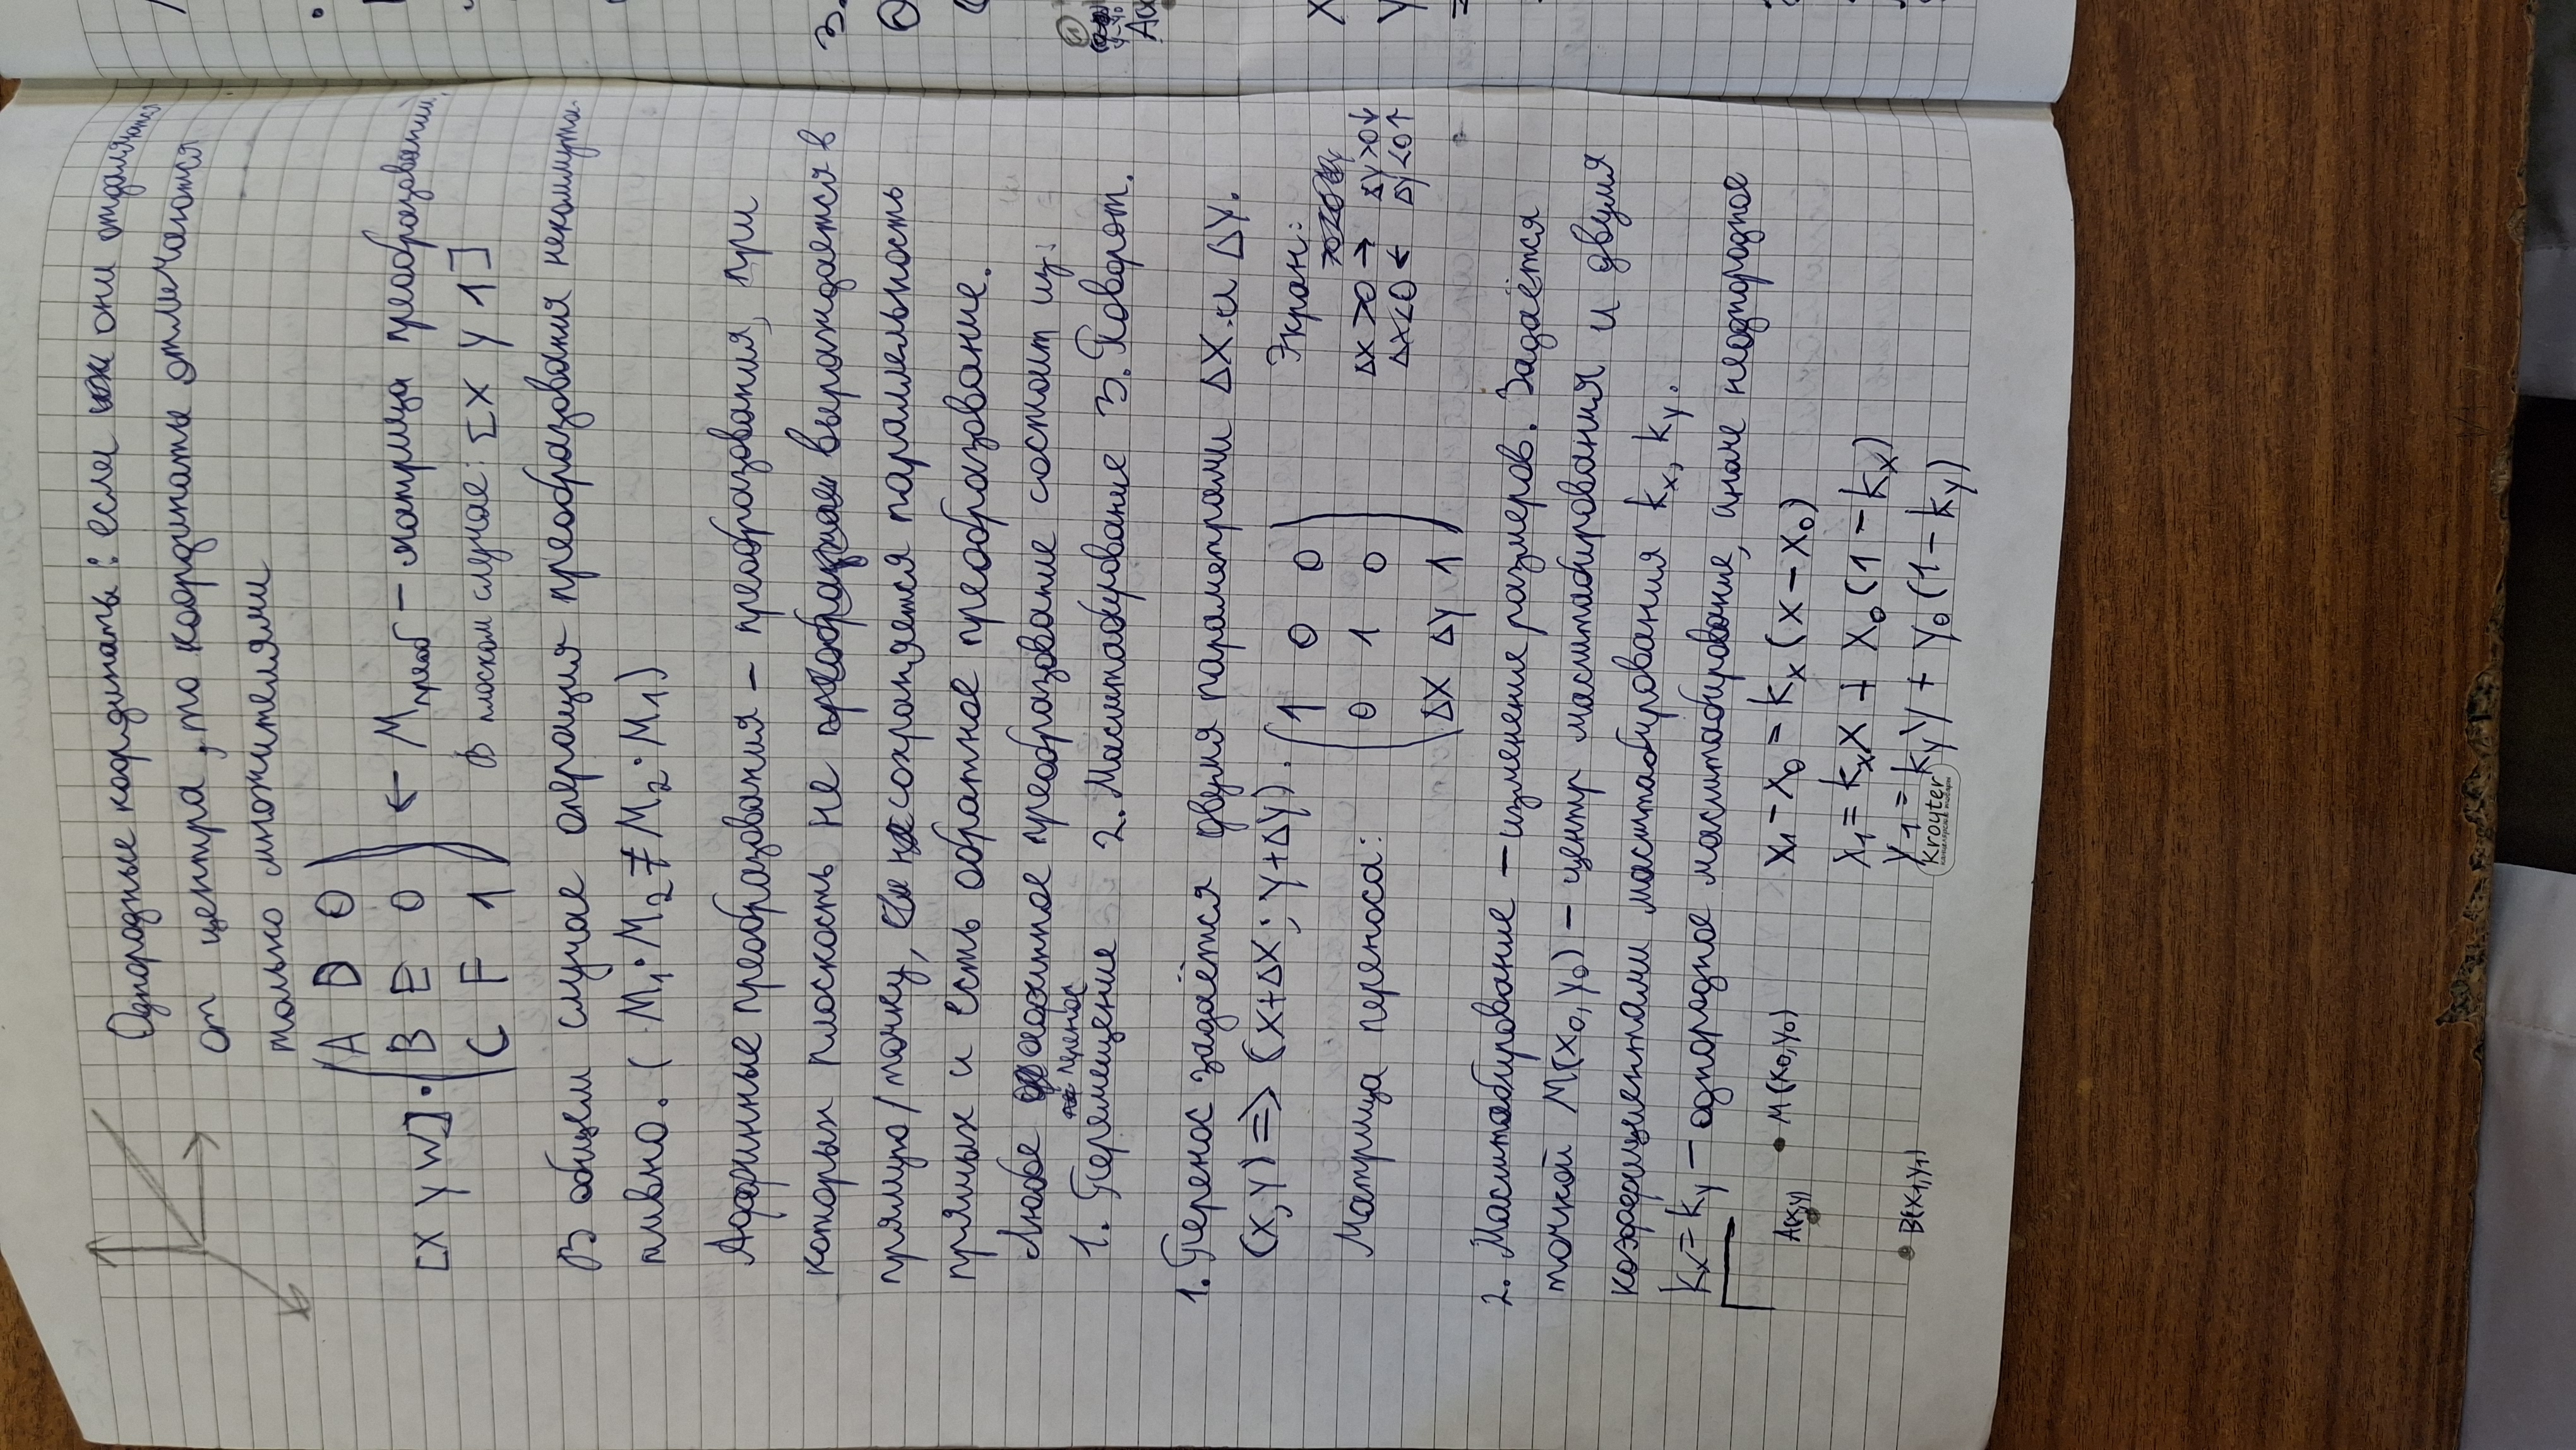 Однородные координаты: если они отдаляются
от центра, то координаты отличаются
только множителями
[X Y W] · (A D 0
B E 0
C F 1)
← Mпреоб – матрица преобразований.
В плоском случае: [X Y 1]
В общем случае операция преобразования некоммута-
тивно. (M₁·M₂ ≠ M₂·M₁)
Аффинные преобразования – преобразования, при
которых плоскость не выраждается в
прямую/точку, сохраняется параллельность
прямых и есть обратное преобразование.
Любое аффинное преобразование состоит из:
перенос
1. Перемещение 2. Масштабирование 3. Поворот.
1. Перенос задаётся двумя параметрами ΔX и ΔY.
(X, Y) => (X+ΔX; Y+ΔY).
Матрица переноса:
(1 0 0
0 1 0
ΔX ΔY 1)
Экран:
ΔX >0 → ΔY>0↓
ΔX<0 ← ΔY<0↑
2. Масштабирование – изменение размеров. Задаётся
точкой M(X₀, Y₀) – центр масштабирования и двумя
коэффициентами масштабирования kx, ky.
kx = ky – однородное масштабирование, иначе неоднородное
A(X,Y) M(X₀,Y₀)
B(X₁,Y₁)
X₁ – X₀ = kx (X – X₀)
X₁ = kxX + X₀ (1 – kx)
Y₁ = kyY + Y₀ (1 – ky)
Kroyter
канцелярские товары